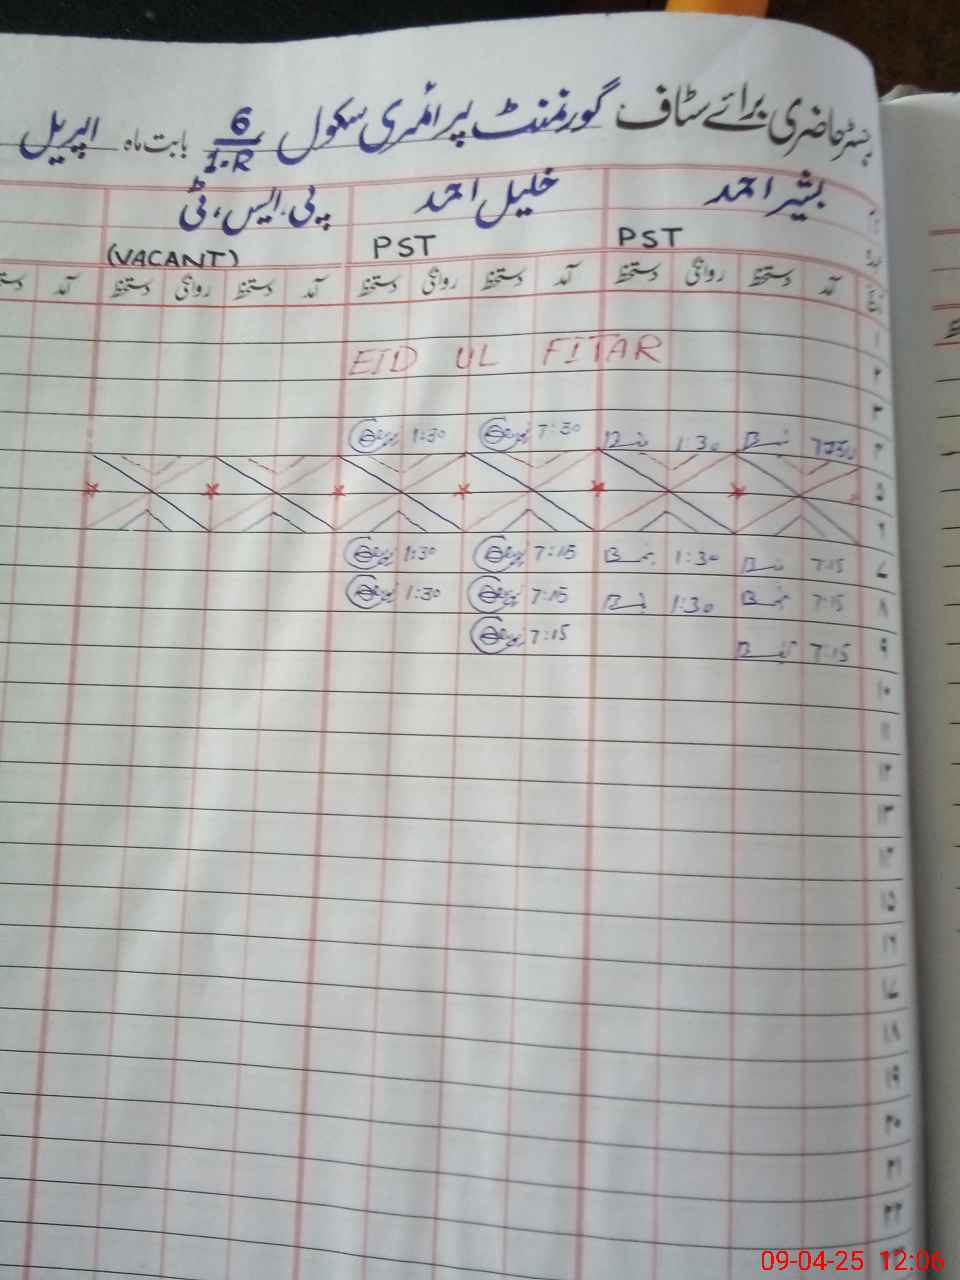 رجسٹر حاضری برائے سٹاف گورنمنٹ پرائمری سکول 6/1-R بابت ماہ اپریل
بشیر احمد خلیل احمد پی.ایس.ٹی
PST PST (VACANT)
آمد دستخط روانگی دستخط آمد دستخط روانگی دستخط آمد دستخط روانگی دستخط آمد
۱
۲ EID UL FITAR
۳
۴ 1:30 7:30 1:30
۵
۶
۷ 7:15 1:30 7:15 1:30
۸ 7:15 1:30 7:15 1:30
۹ 7:15 7:15
۱۰
۱۱
۱۲
۱۳
۱۴
۱۵
۱۶
۱۷
۱۸
۱۹
۲۰
۲۱
۲۲
09-04-25 12:06